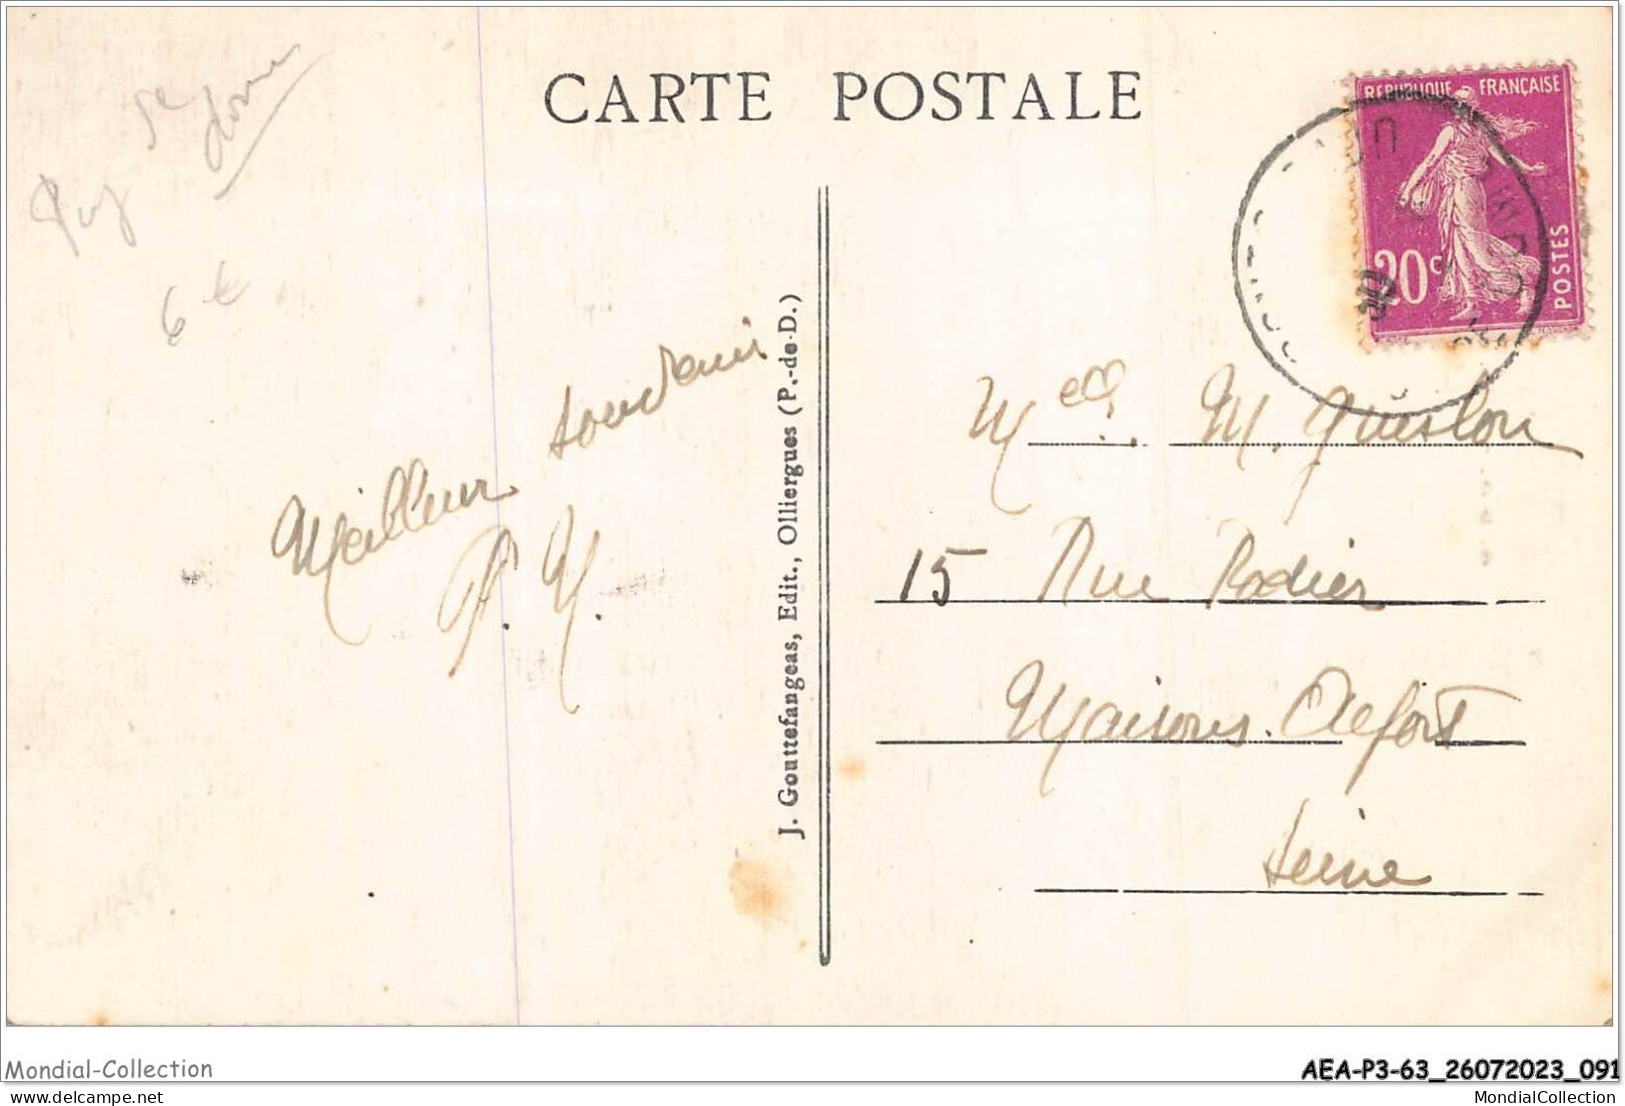 CARTE POSTALE
Puy de dome
6 €
REPUBLIQUE FRANÇAISE
20c
POSTES
Meilleur souvenir
P. M.
J. Gouttefangeas, Edit., Olliergues (P.-de-D.)
Melle. M.
15 Rue Rodier
Maisons-Alfort
Seine
Mondial-Collection
AEA-P3-63_26072023_091
delcampe.net
MondialCollection